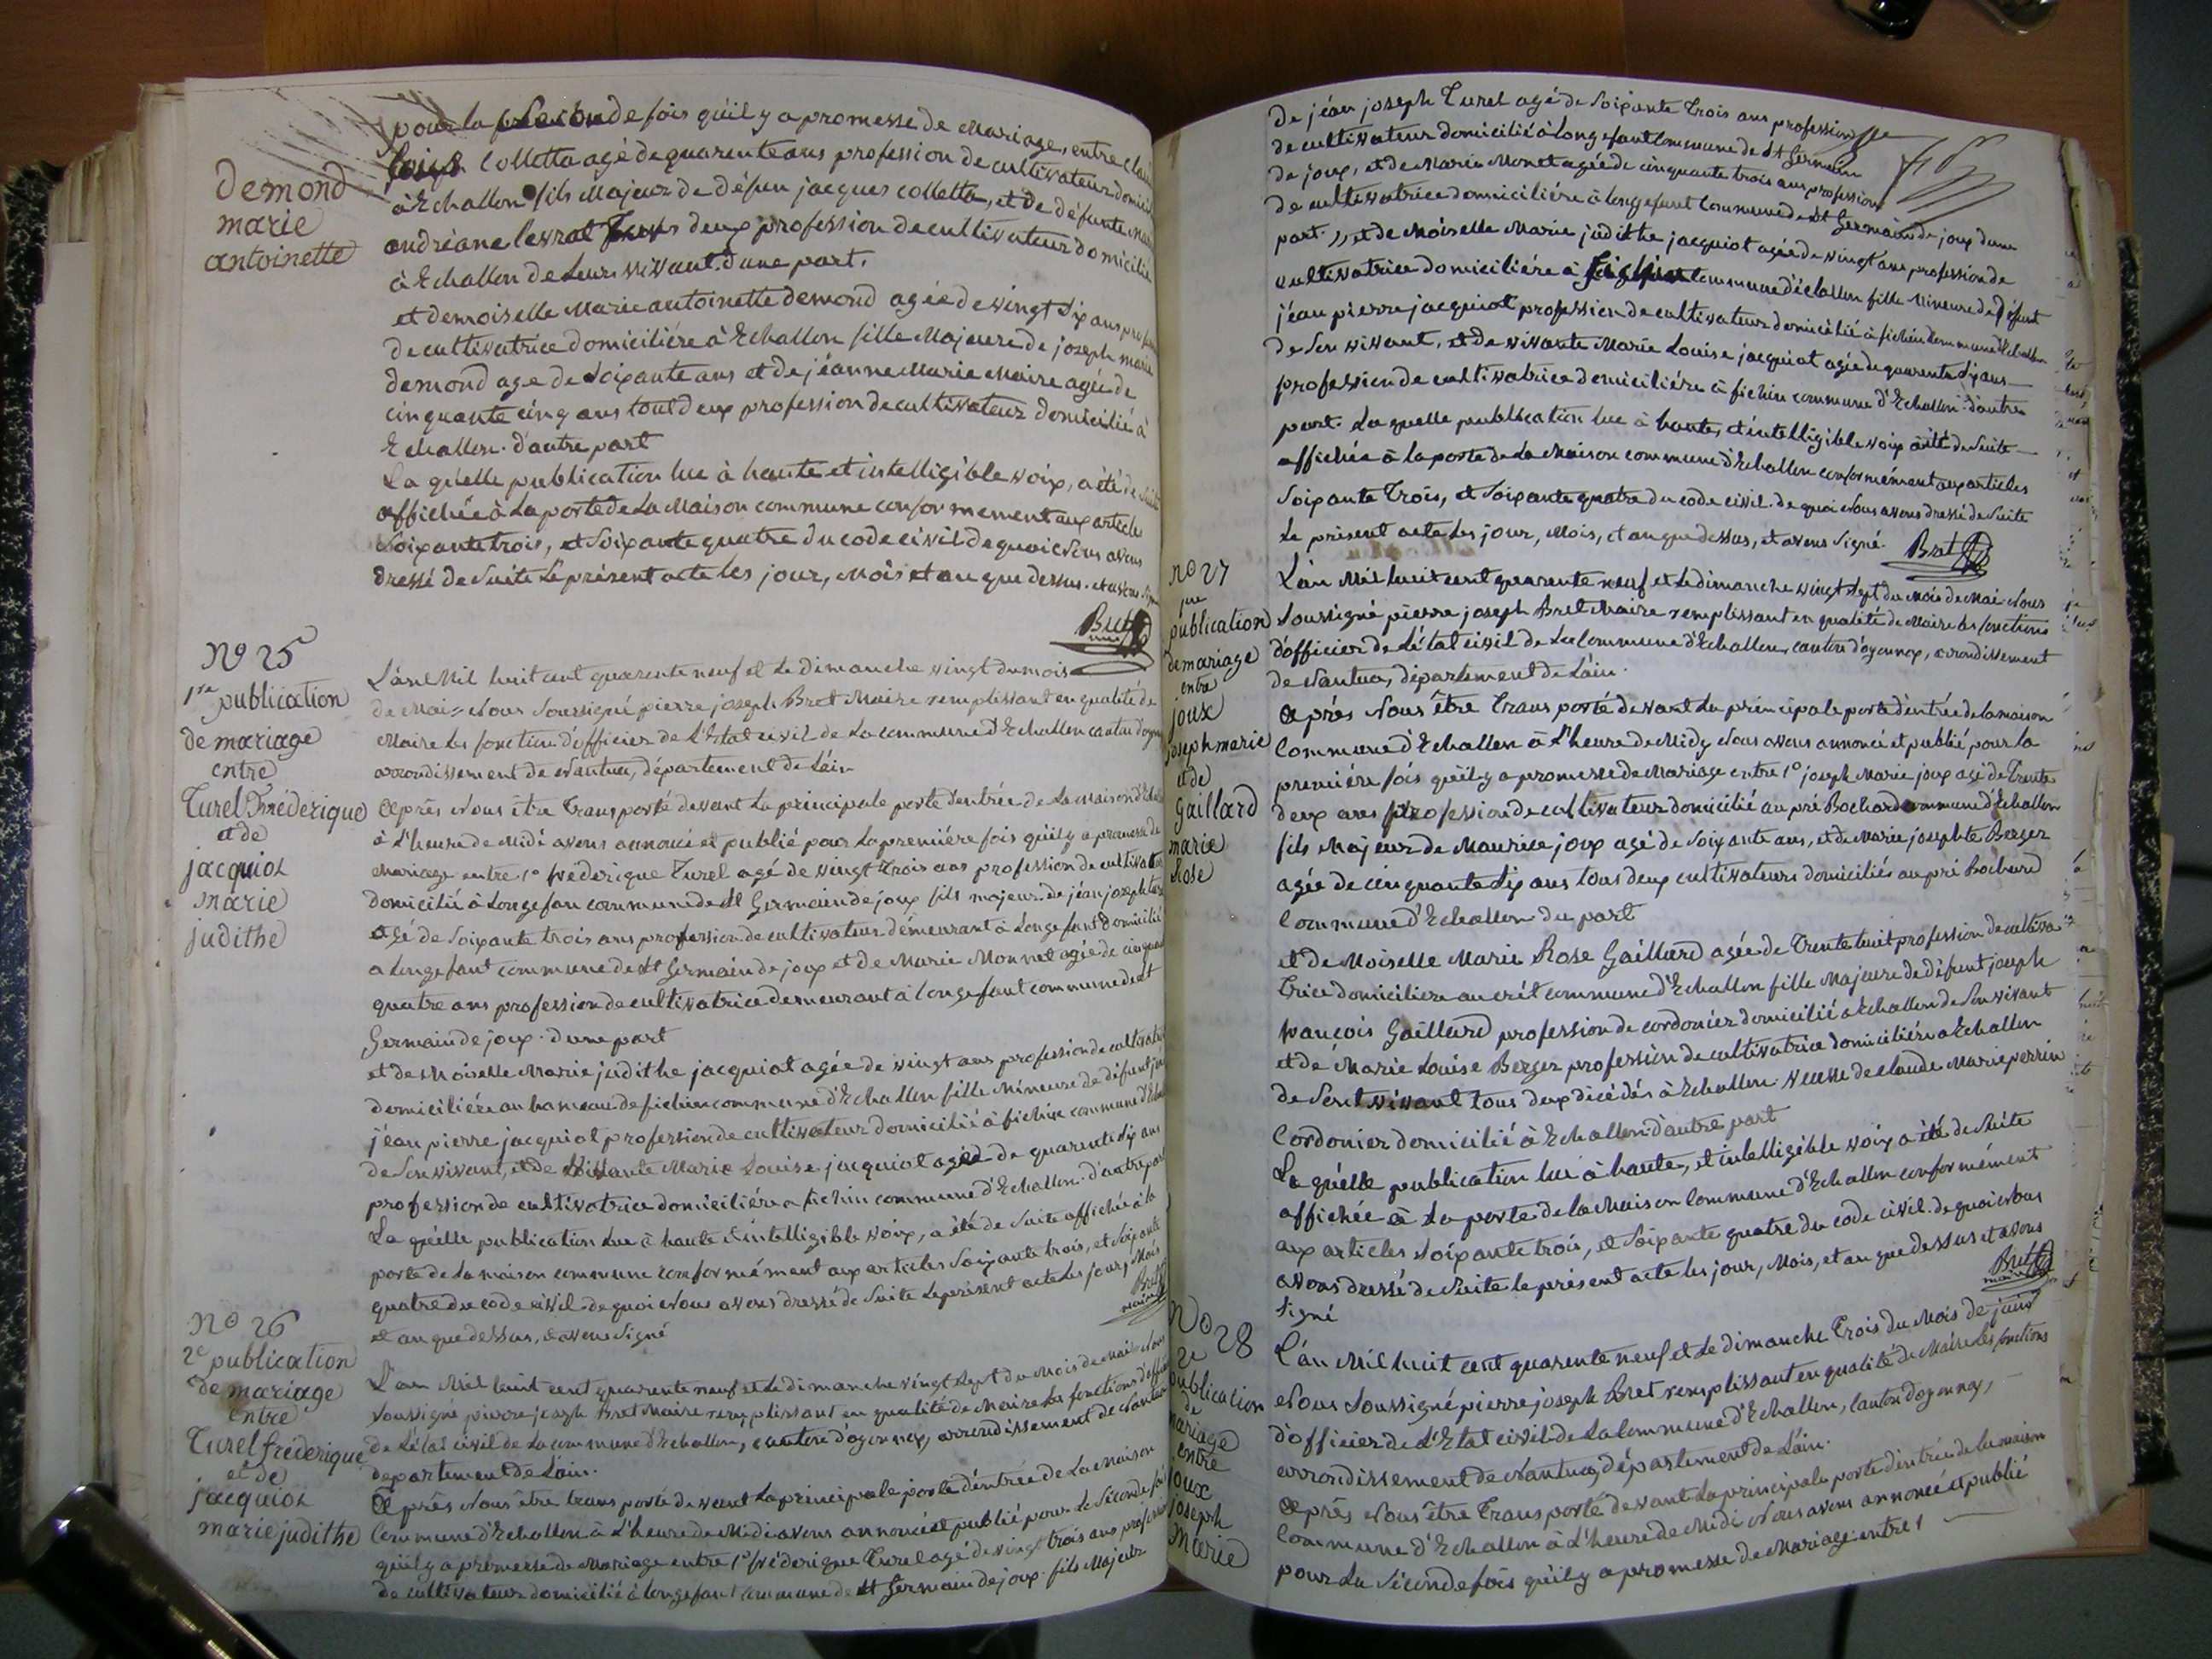 demond
marie
antoinette
pour la seconde fois qu'il y a promesse de Mariage, entre
Colletta agé de quarente ans profession de cultivateur domici
à Echallon fils Majeur de défun jacques colletta, et de défunte
andréane levrat deux profession de cultivateur domicilié
à Echallon de Leurs vivant. d'une part.
et demoiselle Marie antoinette demond agée de vingt Six ans
de cultivatrice domiciliére à Echallon fille Majeure de joseph marie
demond age de Soixante ans et de jéanne Marie Maire agée de
cinquante cinq ans tout deux profession de cultivateur domicilié à
Echallon. d'autre part
La quélle publication lue à haute et intelligible voix, a été de suite
affichée à La porte de La Maison commune conformement aux article
Soixante trois, et Soixante quatre du code civil de quoi Nous avons
dressé de Suite Le présent acte les jour, Mois et an que dessus. et avons
Bret
N° 25
1re publication
de mariage
entre
Turel Fréderique
et de
jacquiot
marie
judithe
L'an Mil huit cent quarente neuf et Le Dimanche vingt du mois
de Mai = Nous Soussigné pierre joseph Bret Maire remplissant en qualité de
Maire Les fonction d'officier de L'Etat civil de La commune d'Echallon canton
arrondissement de Nantua, département de L'ain
Après Nous être Transporté devant La principale porte d'entrée de La maison
à L'heure de Midi avons annoncé et publié pour La premiére fois quil y a promesse de
Mariage entre 1° fréderique Turel agé de vingt trois ans profession de cultivateur
domicilié à Longefan commune de St Germain de joux fils majeur de jéan joseph
agé de Soixante trois ans profession de cultivateur démeurant à Longefant domicilié
a Longefant commune de St Germain de joux et de Marie Monnet agée de cinquante
quatre ans profession de cultivatrice demeurant à longefant commune de St
Germain de joux. d'une part
et de Moiselle Marie judithe jacquiot agée de vingt ans profession de
domiciliére au hameau de fichin commune d'Echallon fille Mineure de défunt
jéan pierre jacquiot profession de cultivateur domicilié à fichin commune
de Son vivant, et de vivante Marie Louise jacquiot agéd de quarente Six ans
profession de cultivatrice domiciliére a fichin commune d'Echallon. d'autre part
La quélle publication Lue à haute & intelligible voix, a été de Suite affichée à la
porte de La maison commune conformément aux articles Soixante trois, et Soixante
quatre du code civil. de quoi Nous avons dressé de Suite Le présent acte Les jour, Mois
et an que dessus, et avons Signé
Bret
maire
N° 26
2e publication
de mariage
entre
Turel fréderique
et de
jacquiot
marie judithe
L'an Mil huit cent quarente neuf et Le dimanche vingt Sept du Mois de Mai. Nous
Soussigné pierre joseph Bret Maire remplissant en qualité de Maire Les fonctions
de L'état civil de La commune d'Echallon, canton d'oyonnax, arrondissement de Nantua
departement de L'ain.
Après Nous être transporté devant La principale porte d'entrée de La Maison
Commune d'Echallon à L'heure de Midi avons annoncé et publié pour La Séconde
quil y a promesse de Mariage entre 1° fréderique Turel agé de vingt trois ans
de cultivateur domicilié à longefant commune de St Germain de joux. fils Majeur
De jéan joseph Turel agé de Soixante Trois ans profession
de cultivateur domicilié à longefant Commune de St Germain
de joux, et de Marie Monet agée de cinquante trois ans profession
de cultivatrice domiciliére à longefant Commune de St Germain de joux dune
part. et de Moiselle Marie judithe jacquiot agée de vingt ans profession de
cultivatrice domiciliére à fichin commune d'échallon fille Mineure de Défunt
jéan pierre jacquiot profession de cultivateur domicilié à fichin commune d'Echallon
de Son vivant, et de vivante Marie Louise jacquiot agée de quarente Six ans
profession de cultivatrice domiciliére à fichin commune d'Echallon. d'autre
part. La quelle publication lue à haute, et intelligible voix à été de Suite
affichée à la porte de La Maison commune d'Echallon conformément aux articles
Soixante Trois, et Soixante quatre du code civil. de quoi Nous avons dressé de Suite
Le présent acte Les jour, Mois, et an que dessus, et avons Signé. Bret
N° 27
1re
publication
de mariage
entre
joux
joseph marie
et de
Gaillard
marie
Rose
L'an Mil huit cent quarente neuf et Le dimanche vingt Sept du Mois de Mai. Nous
Soussigné pierre joseph Bret Maire remplissant en qualité de Maire les fonctions
d'officier de L'état civil de La Commune d'Echallon, canton d'oyonnax, arrondissement
de Nantua, département de L'ain.
Après Nous être Transporté devant La principale porte d'entrée de la maison
Commune d'Echallon à L'heure de Midy Nous avons annoncé et publié pour la
premiére fois quil y a promesse de Mariage entre 1° joseph Marie joux agé de Trente
deux ans profession de cultivateur domicilié au pré Bochard commune d'Echallon
fils Majeur de Maurice joux agé de Soixante ans, et de Marie josephte Berger
agée de cinquante Six ans tous deux cultivateurs domiciliés au pré Bochard
Commune d'Echallon du part
et de Moiselle Marie Rose Gaillard agée de Trente huit profession de cultiva
trice domiciliere au crét commune d'Echallon fille Majeure de défunt joseph
françois Gaillard profession de cordonier domicilié a Echallon de Son vivant
et de Marie Louise Berger profession de cultivatrice domiciliére a Echallon
de Sont vivant tous deux dicédés à Echallon. veuve de claude Marie perrin
Cordonier domicilié à Echallon d'autre part
La quélle publication lue à haute, et intelligible voix a été de Suite
affichée à La porte de la Maison Commune d'Echallon conformément
aux articles Soixante trois, et Soixante quatre du code civil. de quoi Nous
avons dressé de Suite le présent acte les jour, Mois, et an que dessus et avons
Signé
Bret
maire
N° 28
2e
publication
de
mariage
entre
joux
joseph
Marie
L'an Mil huit cent quarente neuf et Le dimanche Trois du Mois de juin
Nous Soussigné pierre joseph Bret remplissant en qualité de Maire Les fonctions
d'officier de L'Etat civil de La Commune d'Echallon, Canton d'oyonnax,
arrondissement de Nantua, département de L'ain.
Après Nous être Transporté devant La principale porte d'entrée de la maison
Commune d'Echallon à L'heure de Midi Nous avons annoncé et publié
pour La Séconde fois quil y a promesse de Mariage entre 1